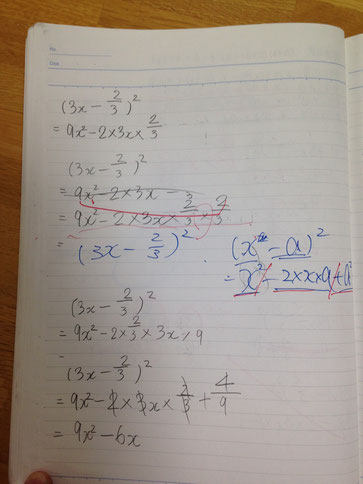 No.
Date
(3x - 2/3)²
= 9x² - 2×3x× 2/3
(3x - 2/3)²
= 9x² - 2×3x -
= 9x² - 2×3x× 2/3 × 2/3
= (3x - 2/3)²
(x - a)²
= x² - 2×x×a + a²
(3x - 2/3)²
= 9x² - 2× 2/3 ×3x×9
(3x - 2/3)²
= 9x² - 2×3x× 2/3 + 4/9
= 9x² - 6x